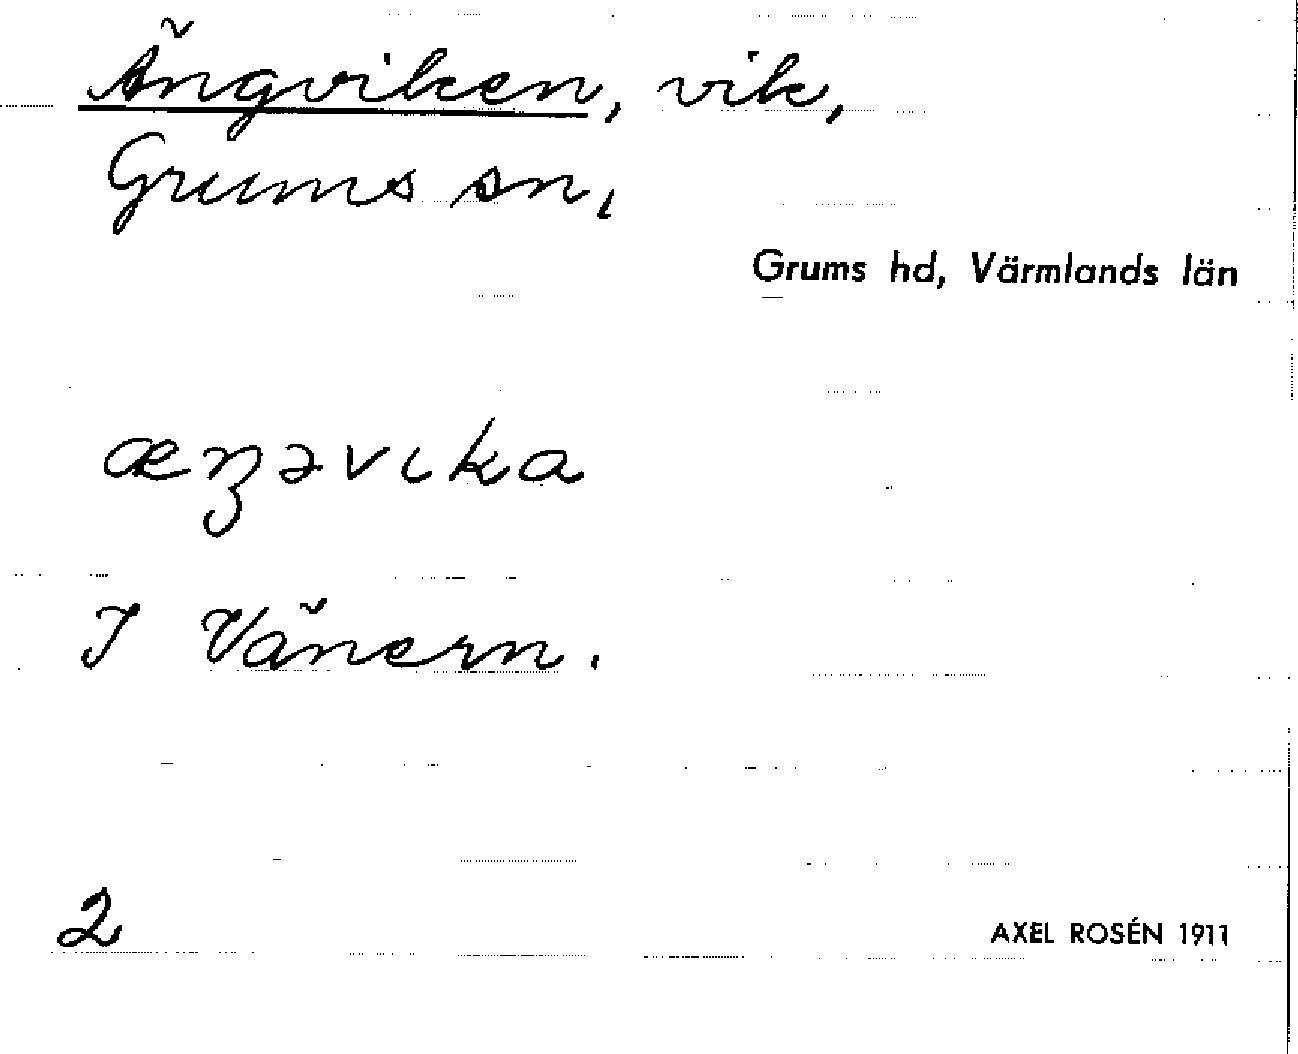 Ängviken, vik,
Grums sn,
Grums hd, Värmlands län
æŋəvika
I Vänern.
2
AXEL ROSÉN 1911